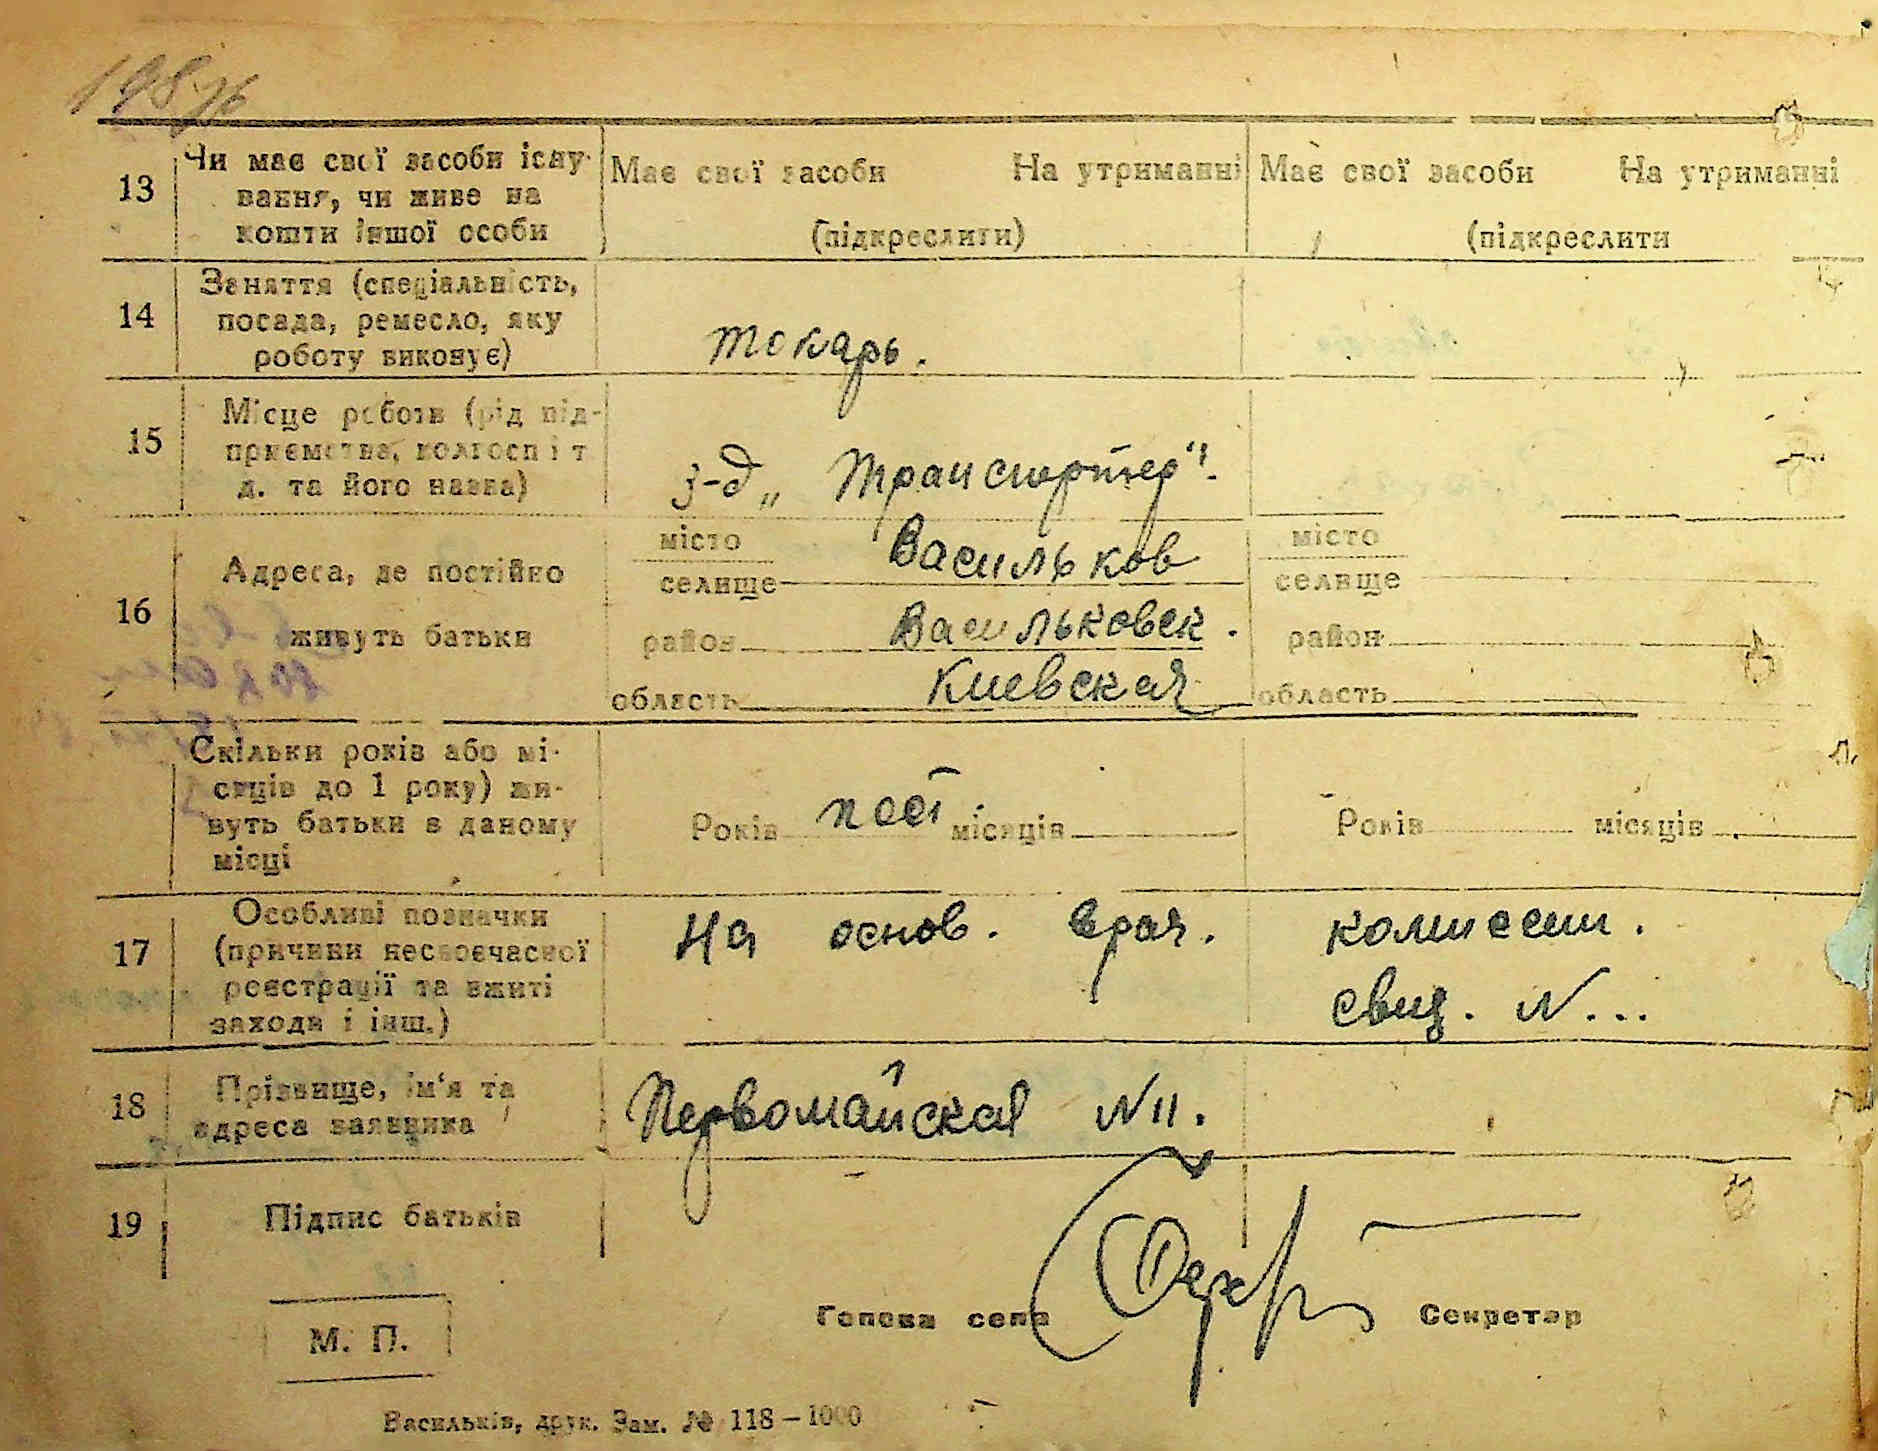 198
13 Чи має свої засоби існу-
вання, чи живе на
кошти іншої особи
Має свої засоби На утриманні
(підкреслити)
Має свої засоби На утриманні
(підкреслити
14 Заняття (спеціальність,
посада, ремесло, яку
роботу виконує)
токарь.
15 Місце роботи (рід під-
приємства, колгосп і т
д. та його назва)
з-д „Транспортер".
16 Адреса, де постійно
живуть батьки
місто
селище
Васильков
район Васильковск.
область Киевская
місто
селище
район
область
Скільки років або мі-
сяців до 1 року) жи-
вуть батьки в даному
місці
Років пост місяців
Років місяців
17 Особливі позначки
(причини несвоєчасної
реєстрації та вжиті
заходи і інш.)
На основ. врач. комиссии.
свид. N...
18 Прізвище, ім'я та
адреса заявника
Первомайская N 11.
19 Підпис батьків
М. П.
Голова села
Секретар
Васильків, друк. Зам. № 118 – 1000